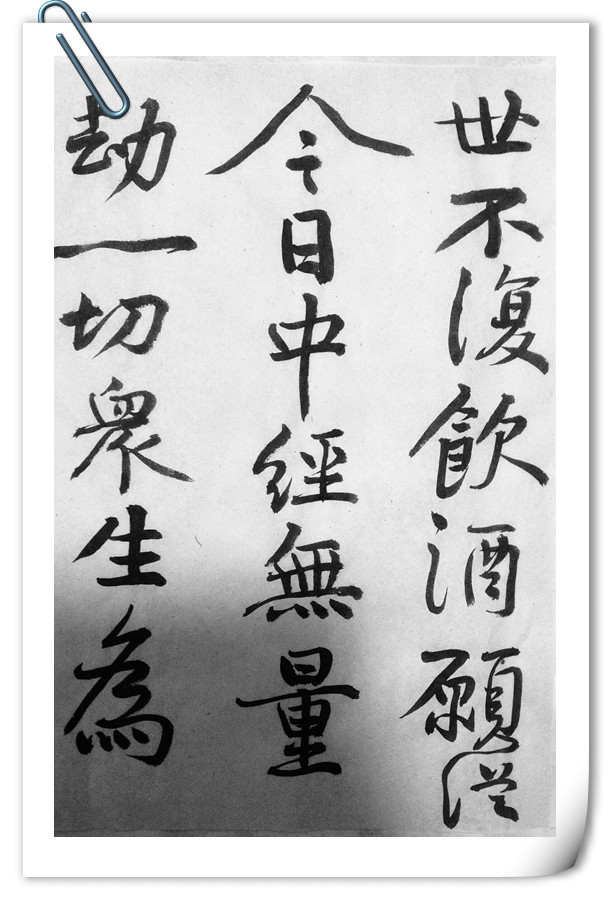 世不復飲酒願從
今日中經無量
劫一切眾生為